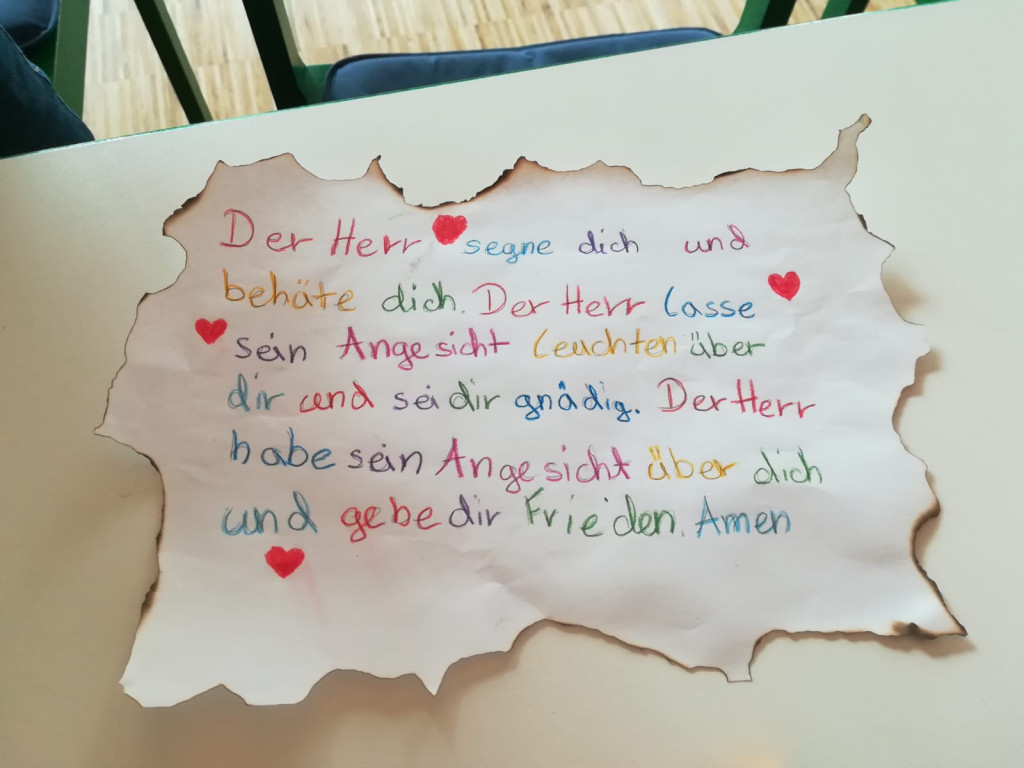 Der Herr segne dich und
behäte dich. Der Herr lasse
sein Angesicht leuchten über
dir und sei dir gnädig. Der Herr
habe sein Angesicht über dich
und gebe dir Frieden. Amen